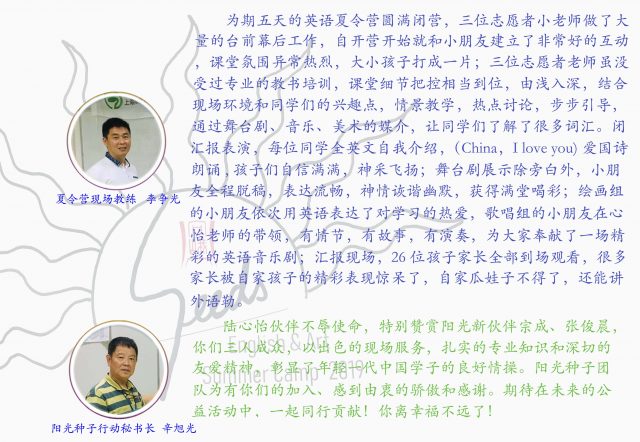 为期五天的英语夏令营圆满闭营，三位志愿者小老师做了大
量的台前幕后工作，自开营开始就和小朋友建立了非常好的互动
，课堂氛围异常热烈，大小孩子打成一片；三位志愿者老师虽没
受过专业的教书培训，课堂细节把控相当到位，由浅入深，结合
现场环境和同学们的兴趣点，情景教学，热点讨论，步步引导，
通过舞台剧、音乐、美术的媒介，让同学们了解了很多词汇。闭
汇报表演，每位同学全英文自我介绍，(China，I love you) 爱国诗
朗诵，孩子们自信满满，神采飞扬；舞台剧展示除旁白外，小朋
友全程脱稿，表达流畅，神情诙谐幽默，获得满堂喝彩；绘画组
的小朋友依次用英语表达了对学习的热爱，歌唱组的小朋友在心
怡老师的带领，有情节，有故事，有演奏，为大家奉献了一场精
彩的英语音乐剧；汇报现场，26 位孩子家长全部到场观看，很多
家长被自家孩子的精彩表现惊呆了，自家瓜娃子不得了，还能讲
外语勒。
夏令营现场教练 李争光
陆心怡伙伴不辱使命，特别赞赏阳光新伙伴宗成、张俊晨，
你们三人成众，以出色的现场服务，扎实的专业知识和深切的
友爱精神，彰显了年轻一代中国学子的良好情操。阳光种子团
队为有你们的加入、感到由衷的骄傲和感谢。期待在未来的公
益活动中，一起同行贡献！你离幸福不远了！
阳光种子行动秘书长 辛旭光
Seeds
English & Art
Summer Camp 2019